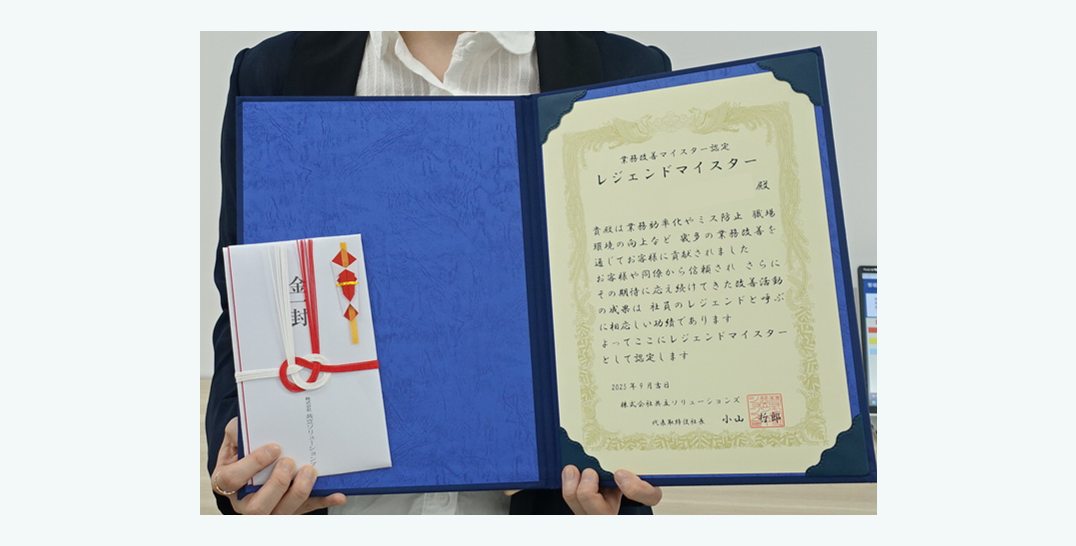 金一封
株式会社 共立ソリューションズ
業務改善マイスター認定
レジェンドマイスター
殿
貴殿は業務効率化やミス防止 職場
環境の向上など 幾多の業務改善を
通じてお客様に貢献されました
お客様や同僚から信頼され さらに
その期待に応え続けてきた改善活動
の成果は 社員のレジェンドと呼ぶ
に相応しい功績であります
よってここにレジェンドマイスター
として認定します
2025年9月吉日
株式会社共立ソリューションズ
代表取締役社長 小山 哲郎